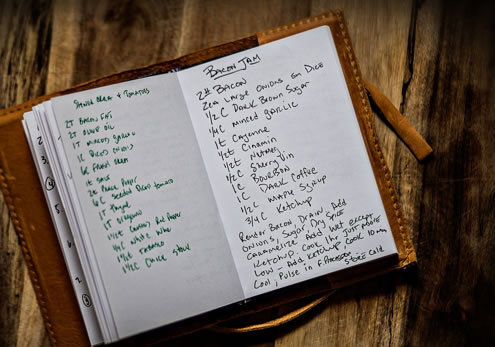 Stewed Okra + Tomatoes
2T Bacon Fat
2T Olive Oil
1T Minced Garlic
1C Diced Onions
6C Fresh Okra
1t Salt
Black Pepper
4C Seeded Diced Tomato
1T Thyme
1T Oregano
Red Pepper
1/4C White Wine
Tabasco
1 1/2C Chick Stock
Bacon Jam
2# Bacon
2ea Large Onions Sm Dice
1/2C Dark Brown Sugar
1/4C Minced Garlic
1t Cayenne
1/2t Cinamin
1/2t Nutmeg
1/2C Sherry Vin
1C Bourbon
1C Dark Coffee
1/2C Maple Syrup
3/4C Ketchup
Render Bacon, Drain, Add
Onions, Sugar, Dry Spice
Caramelize. Add Wet except
Ketchup. Cook 1hr Just above
Low - Add Ketchup Cook 10 min
Cool; Pulse in F. Processor
Store Cold